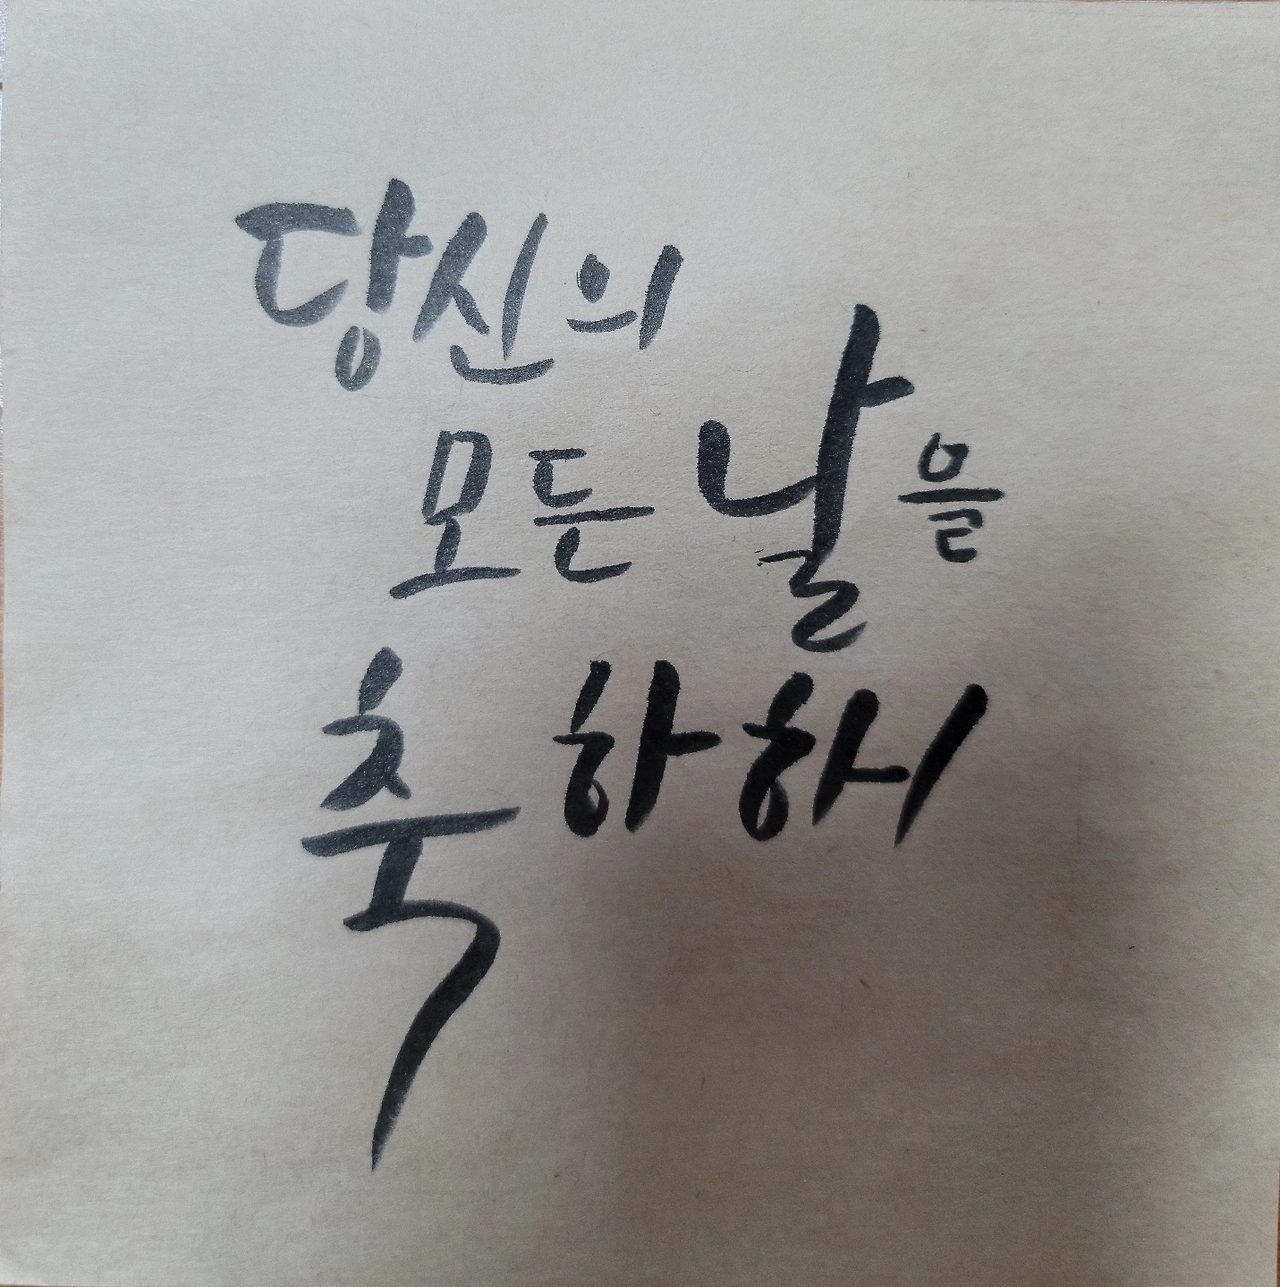 당신의
모든 날을
축하해